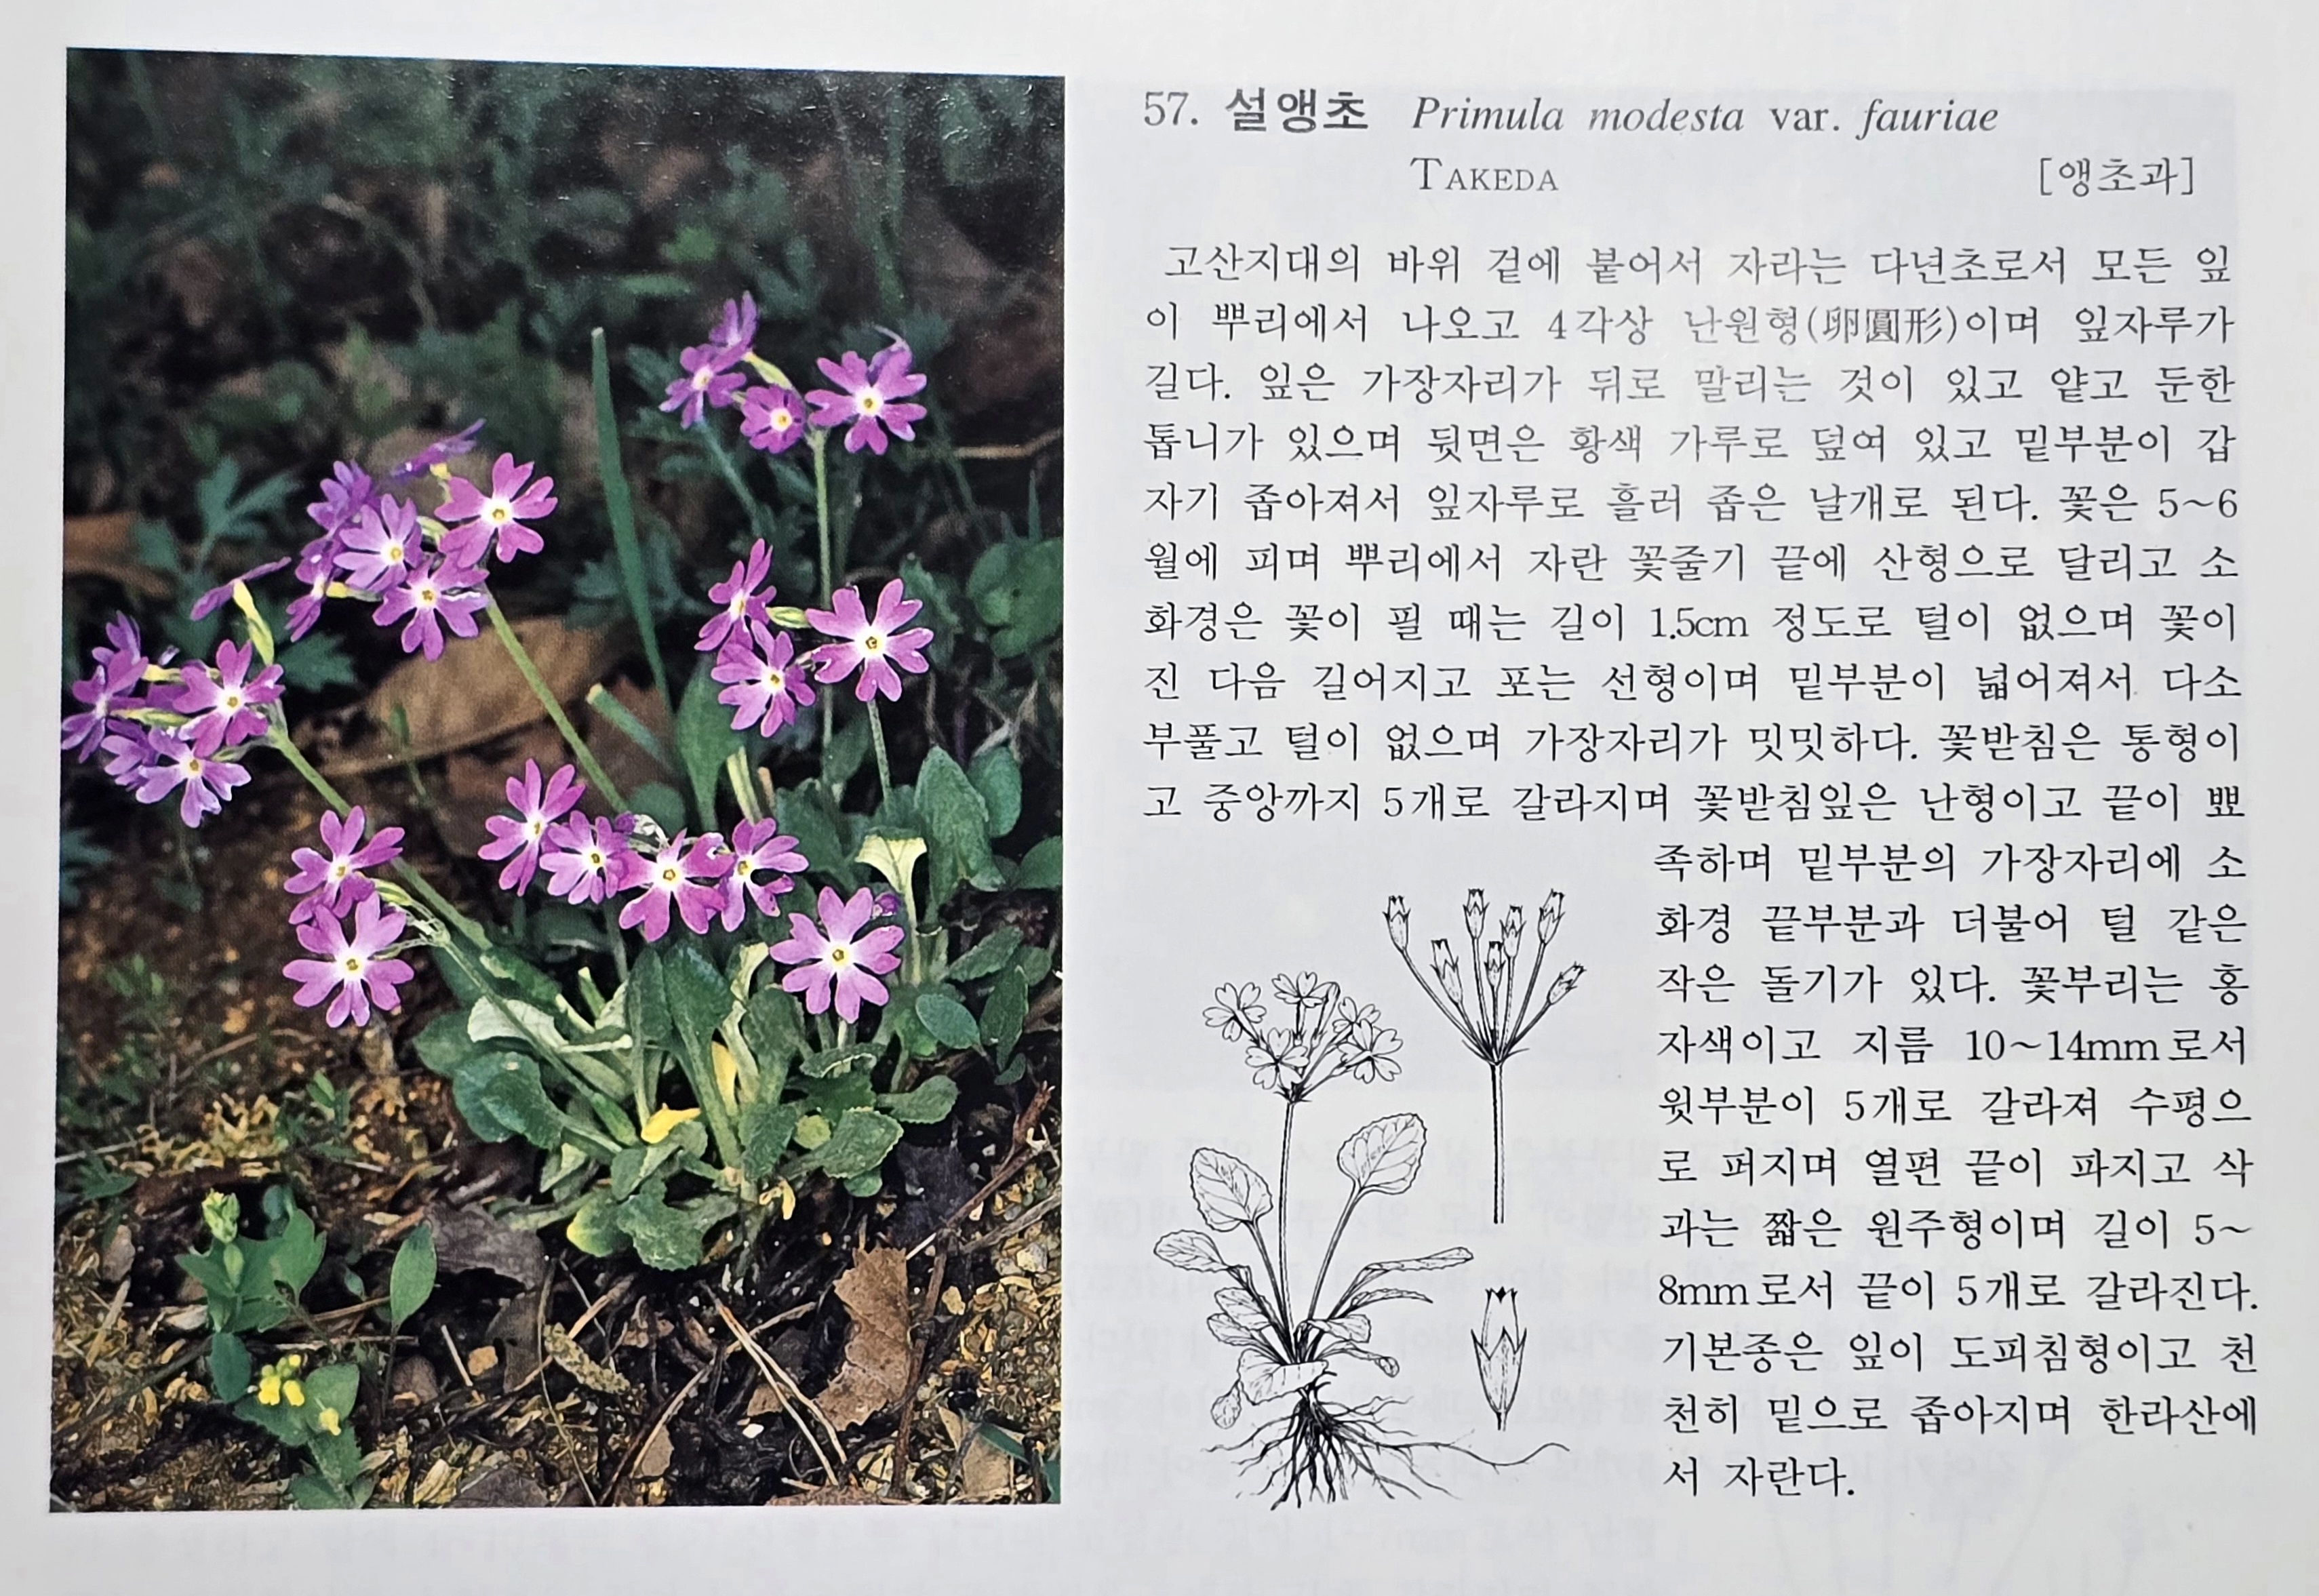 57. 설앵초 Primula modesta var. fauriae
TAKEDA [앵초과]
고산지대의 바위 겉에 붙어서 자라는 다년초로서 모든 잎
이 뿌리에서 나오고 4각상 난원형(卵圓形)이며 잎자루가
길다. 잎은 가장자리가 뒤로 말리는 것이 있고 얕고 둔한
톱니가 있으며 뒷면은 황색 가루로 덮여 있고 밑부분이 갑
자기 좁아져서 잎자루로 흘러 좁은 날개로 된다. 꽃은 5~6
월에 피며 뿌리에서 자란 꽃줄기 끝에 산형으로 달리고 소
화경은 꽃이 필 때는 길이 1.5cm 정도로 털이 없으며 꽃이
진 다음 길어지고 포는 선형이며 밑부분이 넓어져서 다소
부풀고 털이 없으며 가장자리가 밋밋하다. 꽃받침은 통형이
고 중앙까지 5개로 갈라지며 꽃받침잎은 난형이고 끝이 뾰
족하며 밑부분의 가장자리에 소
화경 끝부분과 더불어 털 같은
작은 돌기가 있다. 꽃부리는 홍
자색이고 지름 10~14mm로서
윗부분이 5개로 갈라져 수평으
로 퍼지며 열편 끝이 파지고 삭
과는 짧은 원주형이며 길이 5~
8mm로서 끝이 5개로 갈라진다.
기본종은 잎이 도피침형이고 천
천히 밑으로 좁아지며 한라산에
서 자란다.